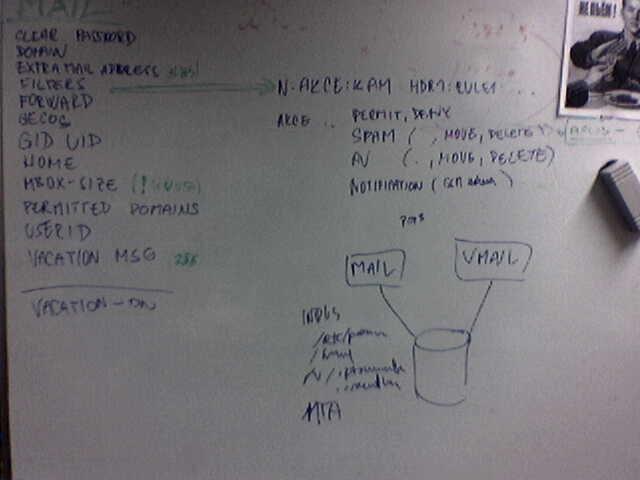 MAIL
CLEAR PASSWORD
DOMAIN
EXTRA MAIL ADDRESS
FILTERS
FORWARD
GECOS
GID UID
HOME
MBOX-SIZE (!
PERMITTED DOMAINS
USERID
VACATION MSG 255
VACATION-ON
N:AKCE:KAM HDR7:RULE1...
AKCE .. PERMIT, DENY
SPAM ( , MOVE, DELETE)
AV ( . , MOVE, DELETE)
NOTIFICATION (
MAIL
VMAIL
MTA
НЕ ПЬЁМ!